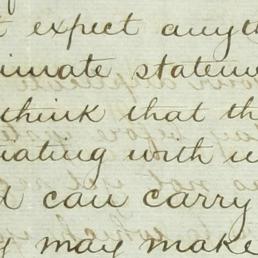 t expect anyth
imate statem
think that th
iating with u
d can carry
y may make